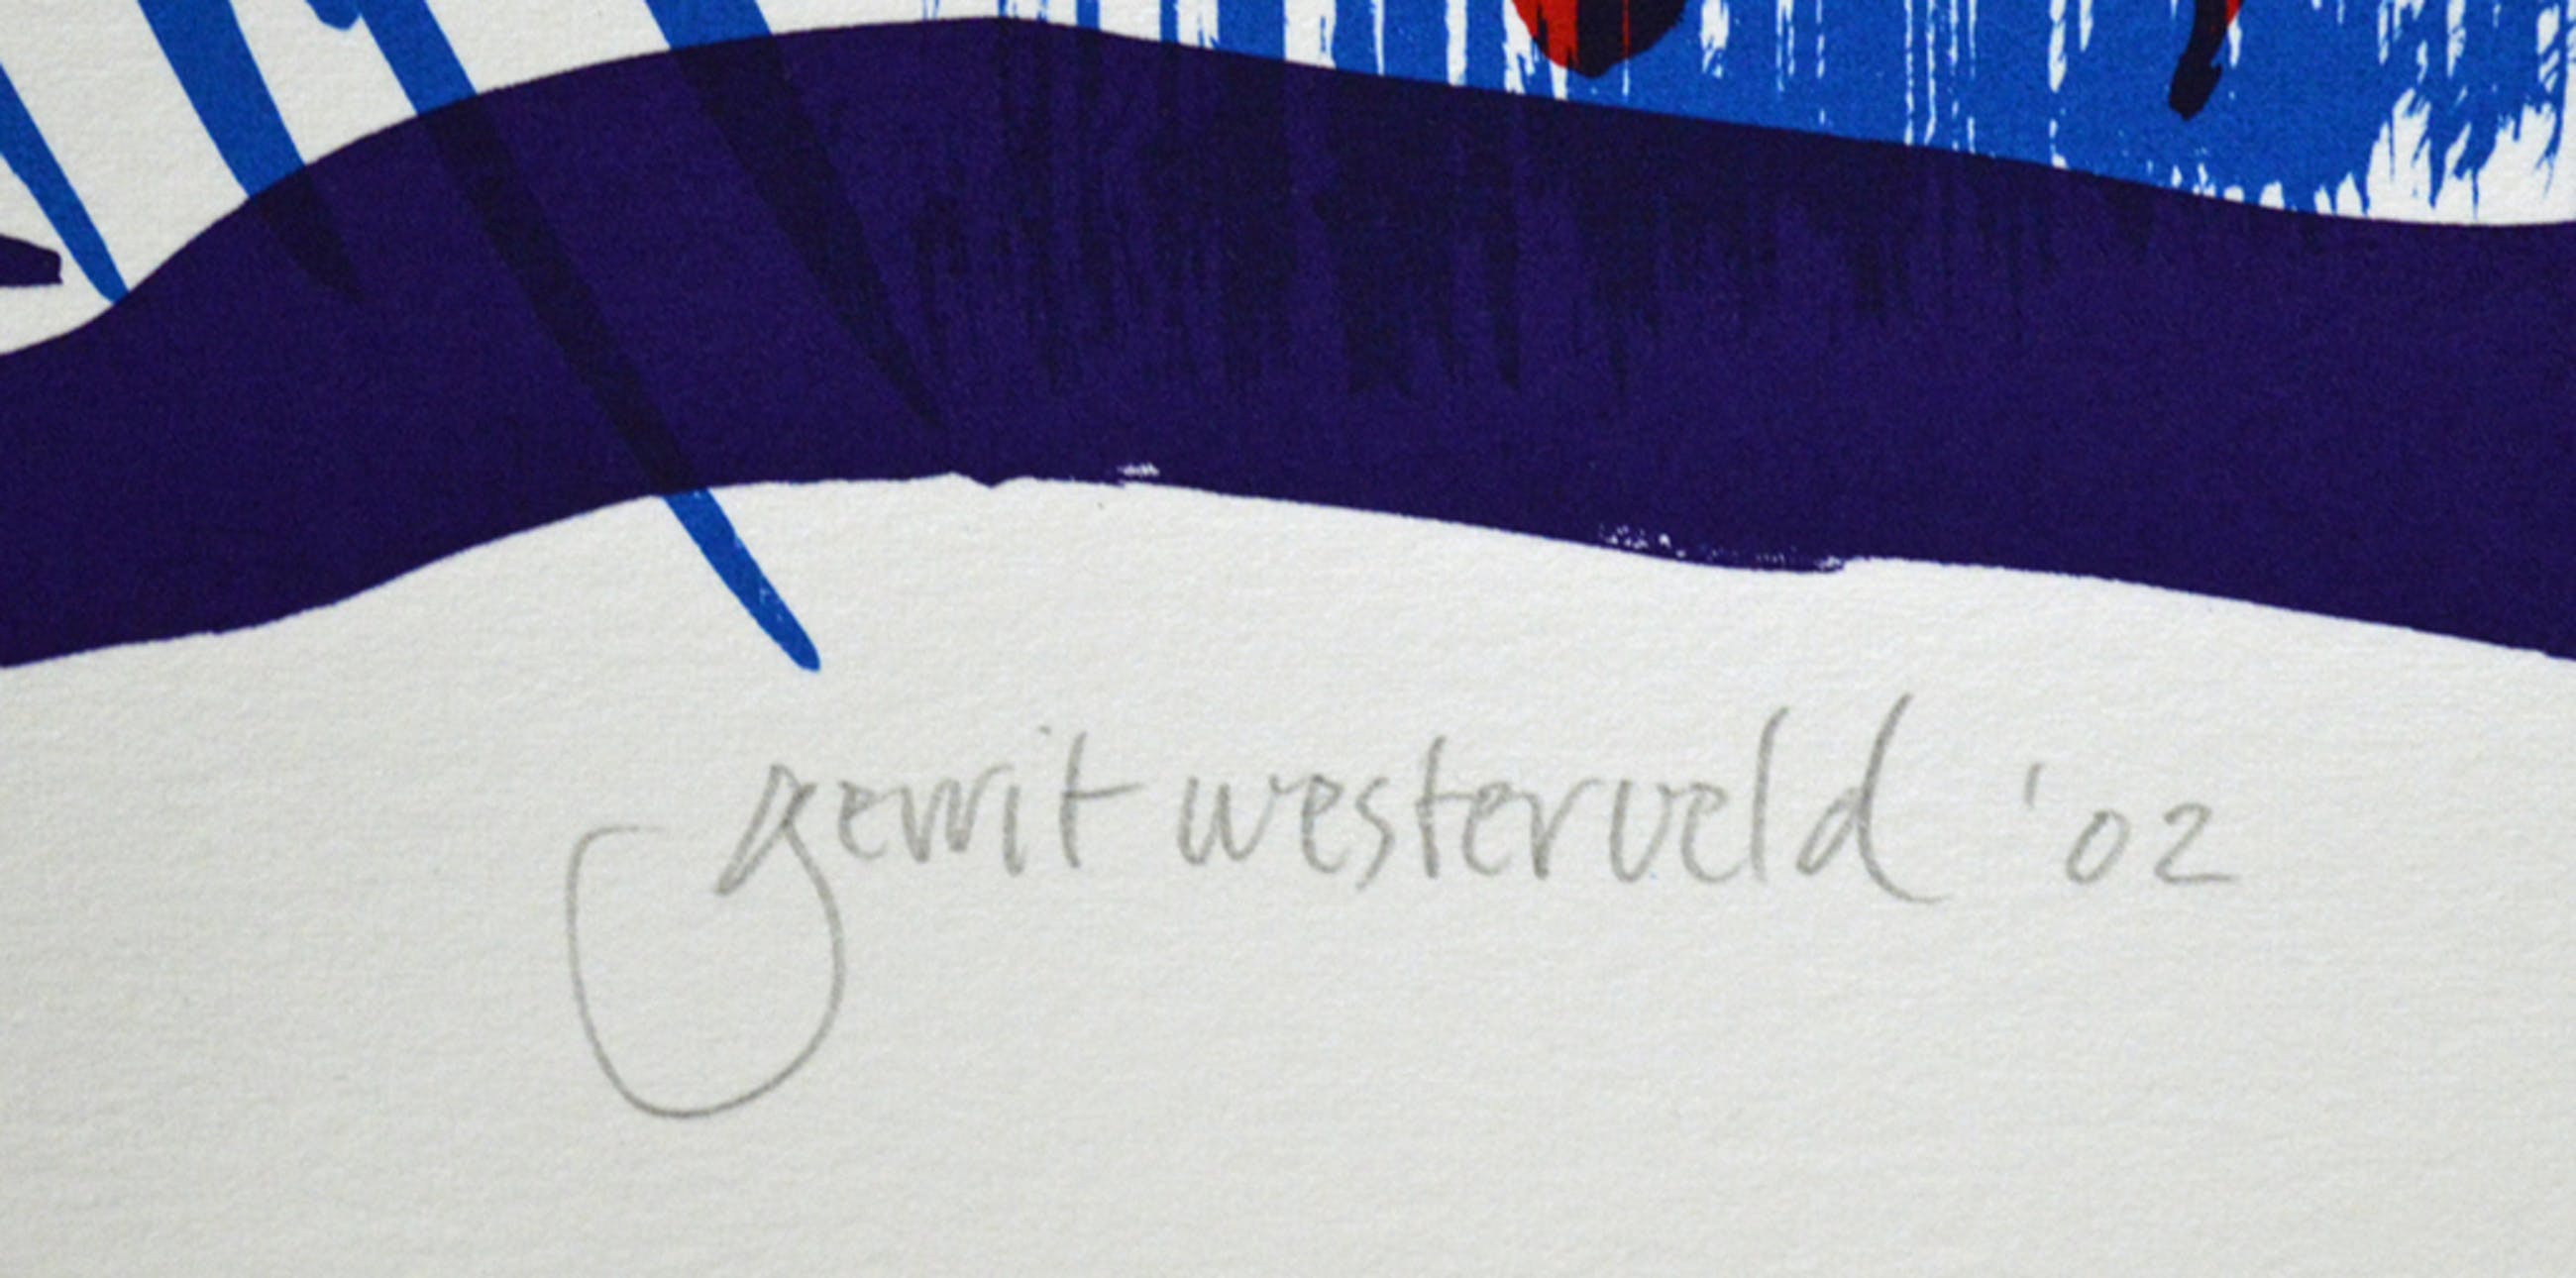 gerrit westerveld '02